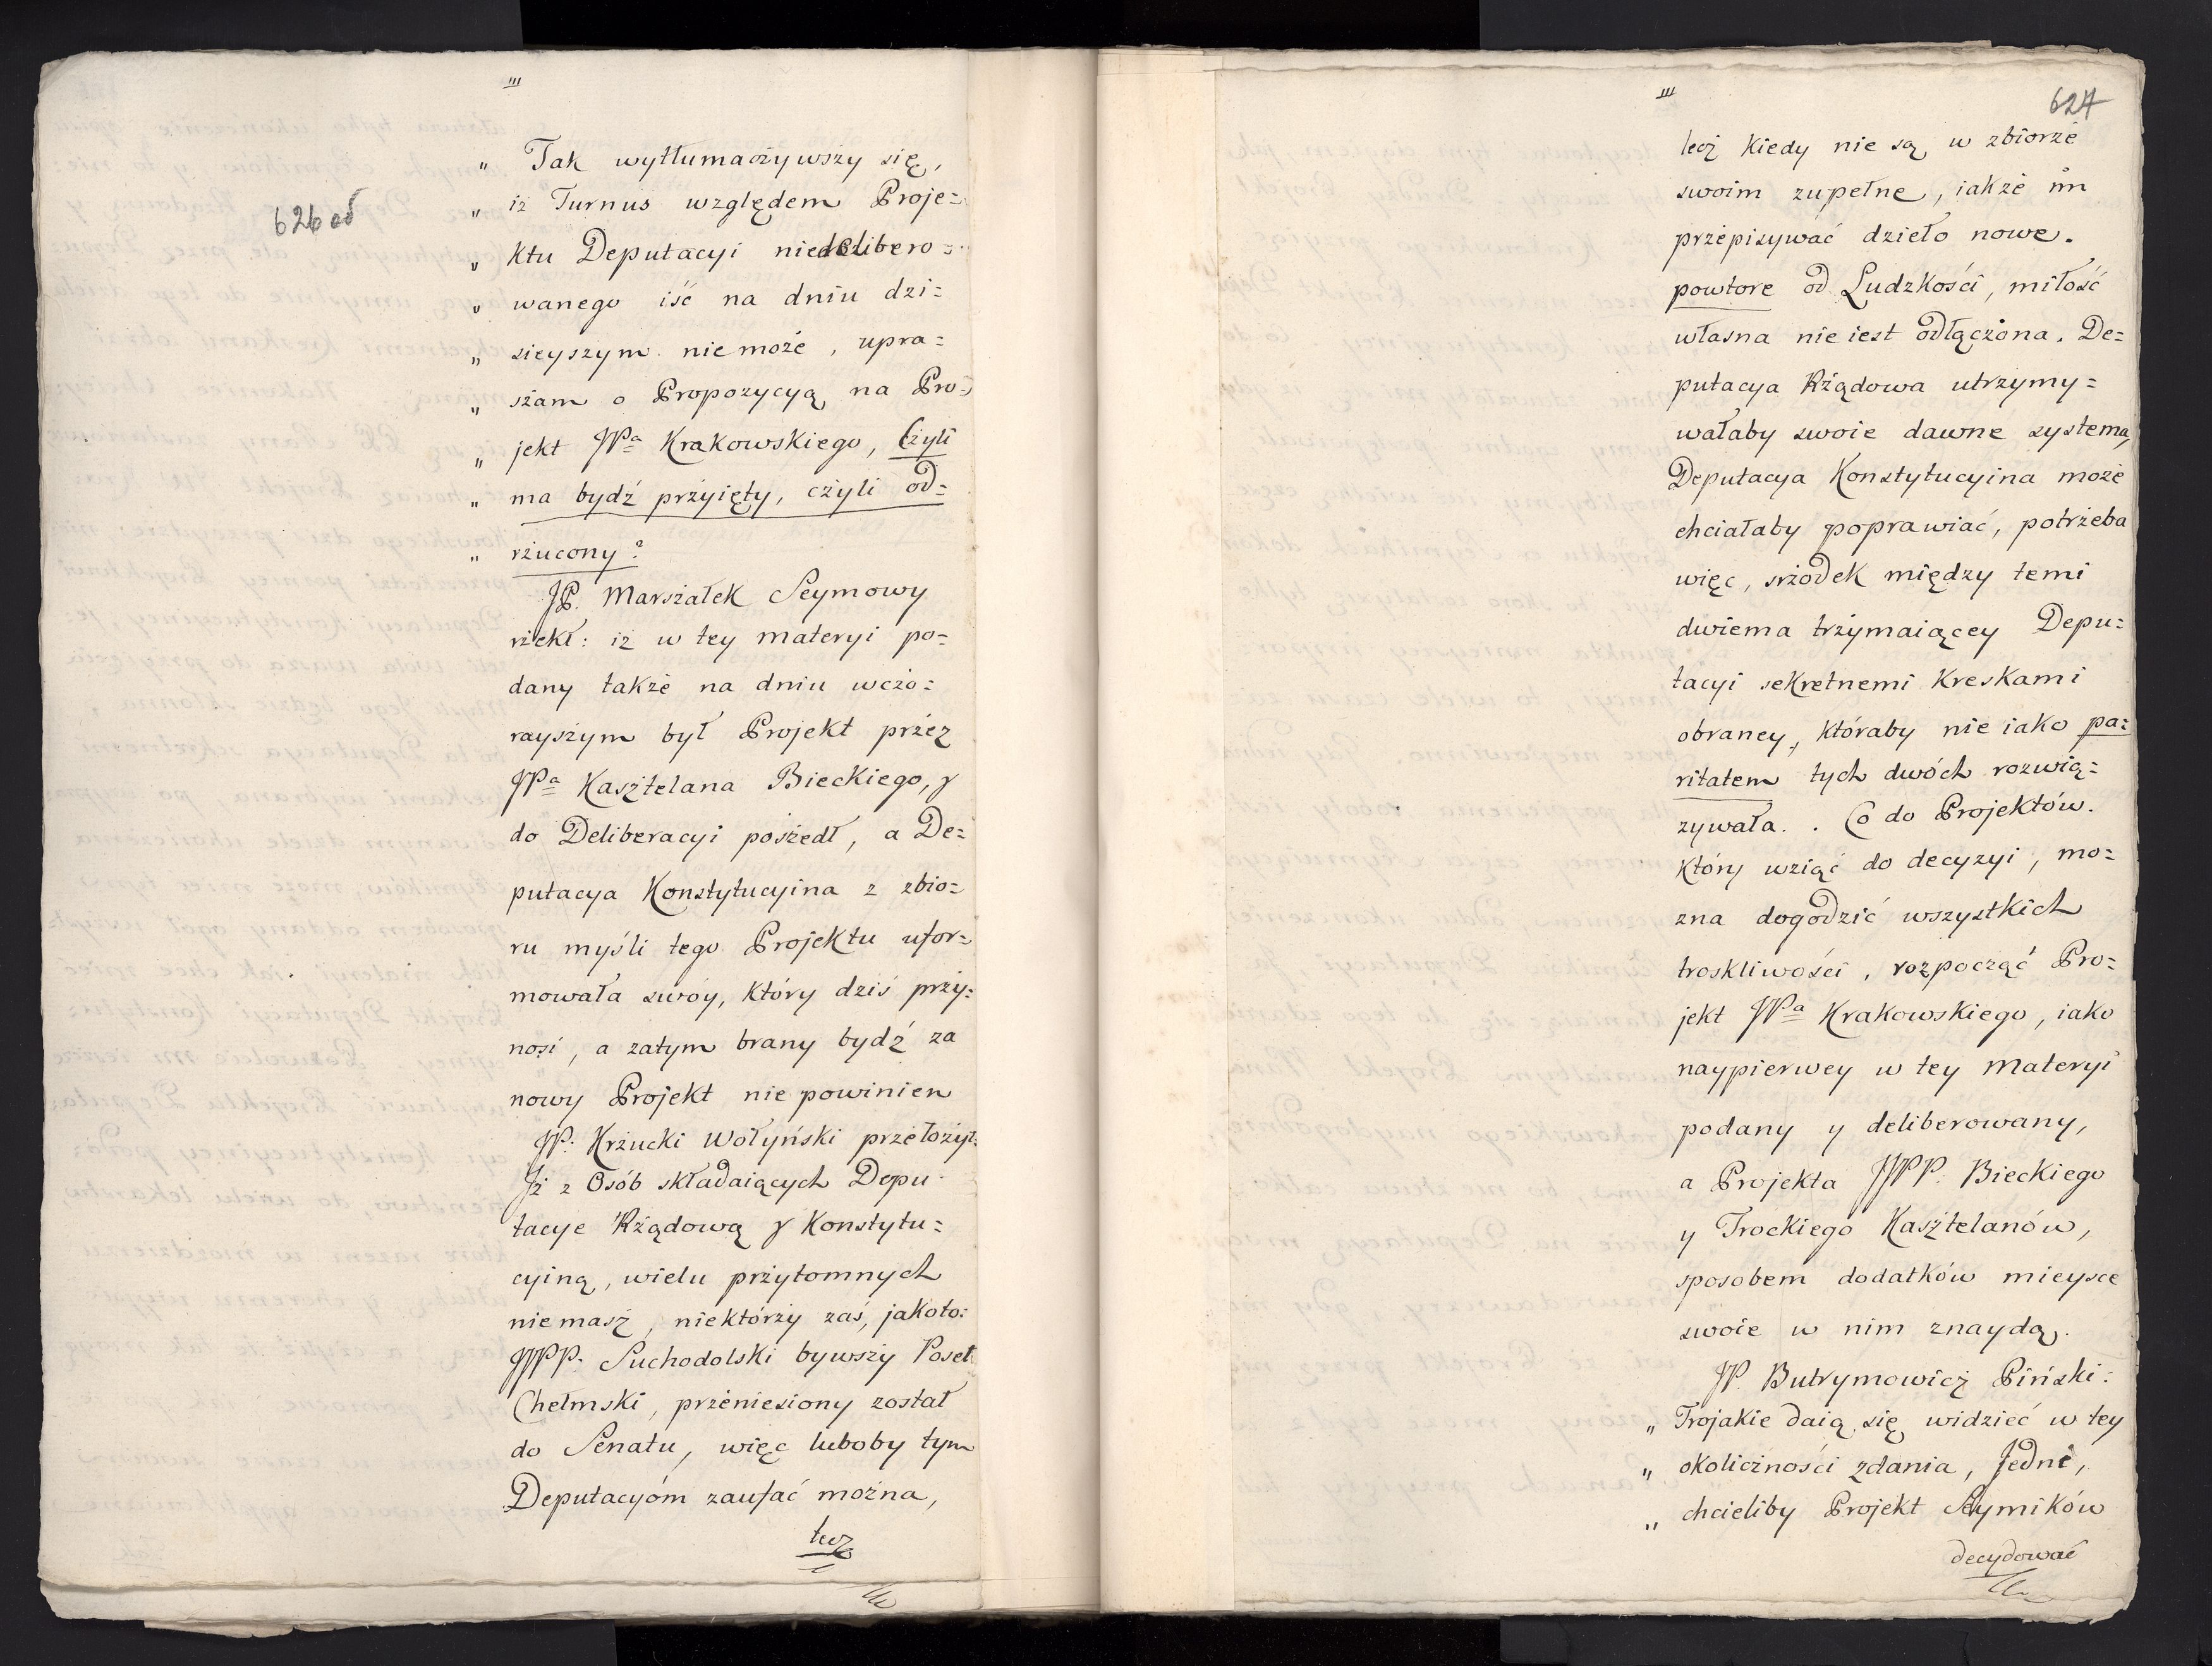 III
626 od
„ Tak wytłumaczywszy się,
„ iż Turnus względem Proje=
„ ktu Deputacyi niedelibero=
„ wanego iść na dniu dzi=
„ sieyszym nie może, upra=
„ szam o Propozycyą na Pro=
„ jekt JPa Krakowskiego, Czyli
„ ma bydź przyięty, czyli od=
„ rzucony?
JP. Marszałek Seymowy
rzekł: iż w tey materyi po=
dany także na dniu wczo=
rayszym był Projekt przez
JPa Kasztelana Bieckiego, y
do Deliberacyi poszedł, a De=
putacya Konstytucyina z zbio=
ru myśli tego Projektu ufor=
mowała swóy, który dziś przy=
nosi, a zatym brany bydź za
nowy Projekt nie powinien
JP: Krzucki Wołyński przełożył:
Jż z Osób składaiących Depu=
tacye Rządową y Konstytu=
cyiną, wielu przytomnych
niemasz, niektórzy zaś, jakoto:
JJPP: Suchodolski bywszy Poseł
Chełmski, przeniesiony został
do Senatu, więc luboby tym
Deputacyóm zaufać można,
lecz
III
627
lecz kiedy nie są w zbiorze
swoim zupełne, iakże im
przepisywać dzieło nowe.
powtore od Ludzkości, miłość
własna nie iest odłączona. De=
putacya Rządowa utrzymy=
wałaby swoie dawne systema,
Deputacya Konstytucyina może
chciałaby poprawiać, potrzeba
więc, srzodek między temi
dwiema trzymaiącey Depu=
tacyi sekretnemi Kreskami
obraney, któraby nie iako pa=
ritatem tych dwóch rozwią=
zywała. . Co do Projektów.
który wziąć do decyzyi, mo=
zna dogodzić wszystkich
troskliwości, rozpocząć Pro=
jekt JPa Krakowskiego, iako
naypierwey w tey Materyi
podany y deliberowany,
a Projekta JJPP. Bieckiego
y Trockiego Kasztelanów,
sposobem dodatków mieysce
swoie w nim znaydą.
JP. Butrymowicz Piński:
„ Trojakie daią się widzieć w tey
„ okoliczności zdania, Jedni,
„ chcieliby Projekt Seymików
decydować